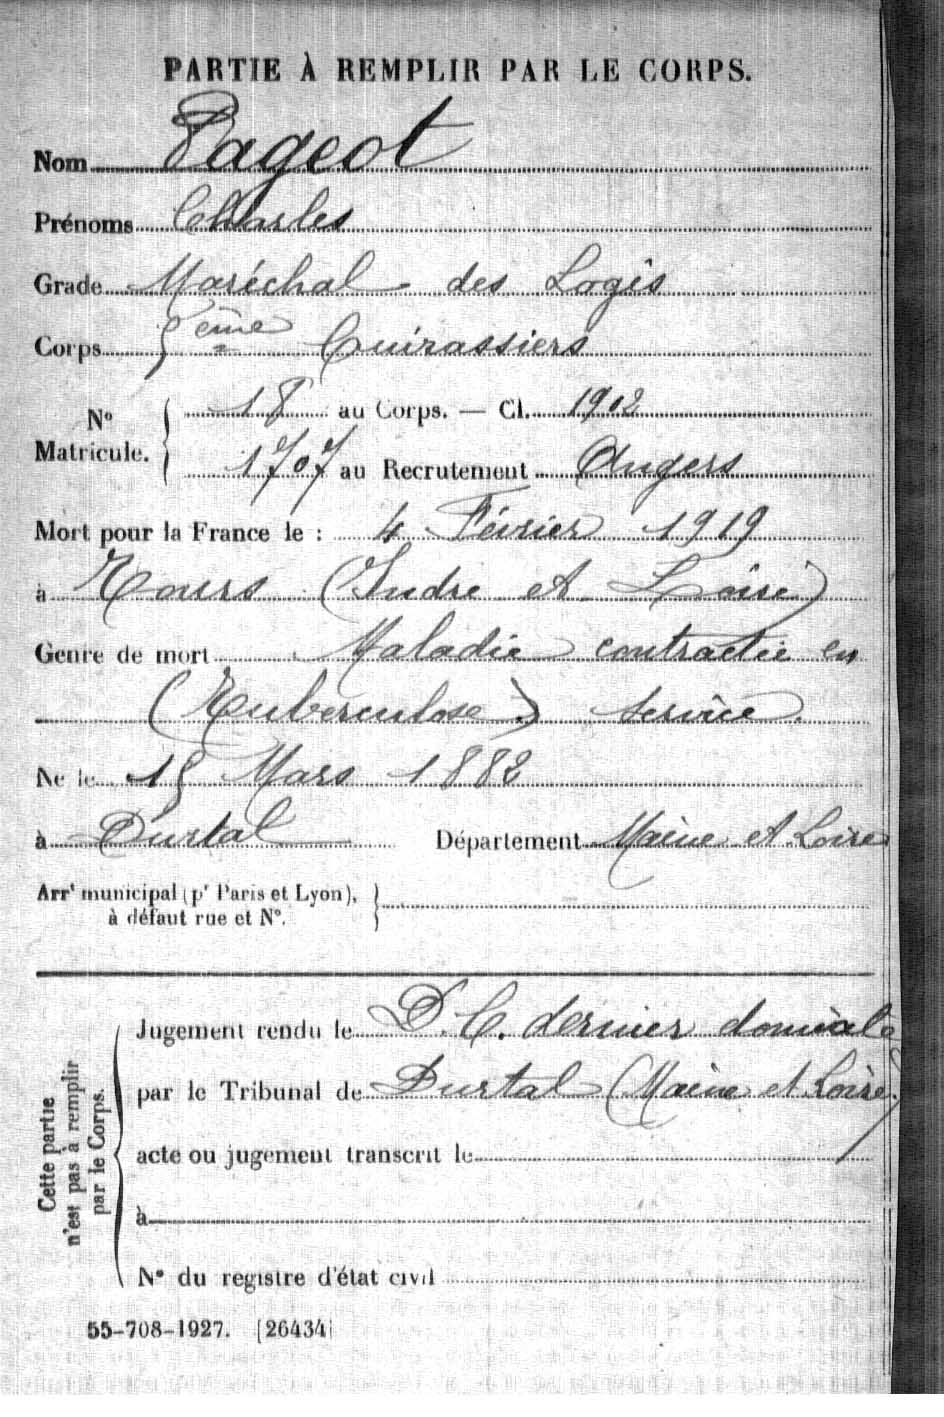 PARTIE À REMPLIR PAR LE CORPS.
Nom Pageot
Prénoms Charles
Grade Maréchal des Logis
Corps 5ème Cuirassiers
N° Matricule. 18 au Corps. — Cl. 1902
1707 au Recrutement Angers
Mort pour la France le : 4 Février 1919
à Tours (Indre et Loire)
Genre de mort Maladie contractée en
(Tuberculose) service.
Né le 15 Mars 1882
à Durtal Département Maine et Loire
Arrt municipal (pr Paris et Lyon),
à défaut rue et N°.
Cette partie
n'est pas à remplir
par le Corps.
Jugement rendu le D.C. dernier domicile
par le Tribunal de Durtal (Maine et Loire)
acte ou jugement transcrit le
à
N° du registre d'état civil
55-708-1927. [26434]